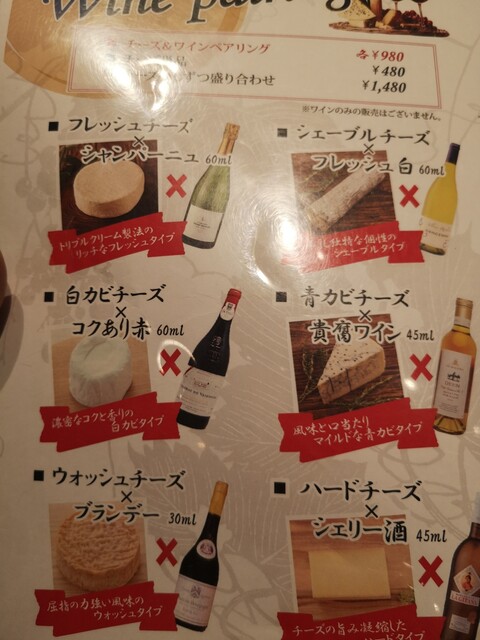 Wine pairing
チーズ&ワインペアリング 各¥980
品 ¥480
ずつ盛り合わせ ¥1,480
※ワインのみの販売はございません。
■ フレッシュチーズ
×
シャンパーニュ 60ml
トリプルクリーム製法の
リッチなフレッシュタイプ
■ シェーブルチーズ
×
フレッシュ白 60ml
独特な個性の
シェーブルタイプ
■ 白カビチーズ
×
コクあり赤 60ml
濃密なコクと香りの
白カビタイプ
■ 青カビチーズ
×
貴腐ワイン 45ml
風味と口当たり
マイルドな青カビタイプ
■ ウォッシュチーズ
×
ブランデー 30ml
屈指の力強い風味の
ウォッシュタイプ
■ ハードチーズ
×
シェリー酒 45ml
チーズの旨み凝縮した
ハードタイプ